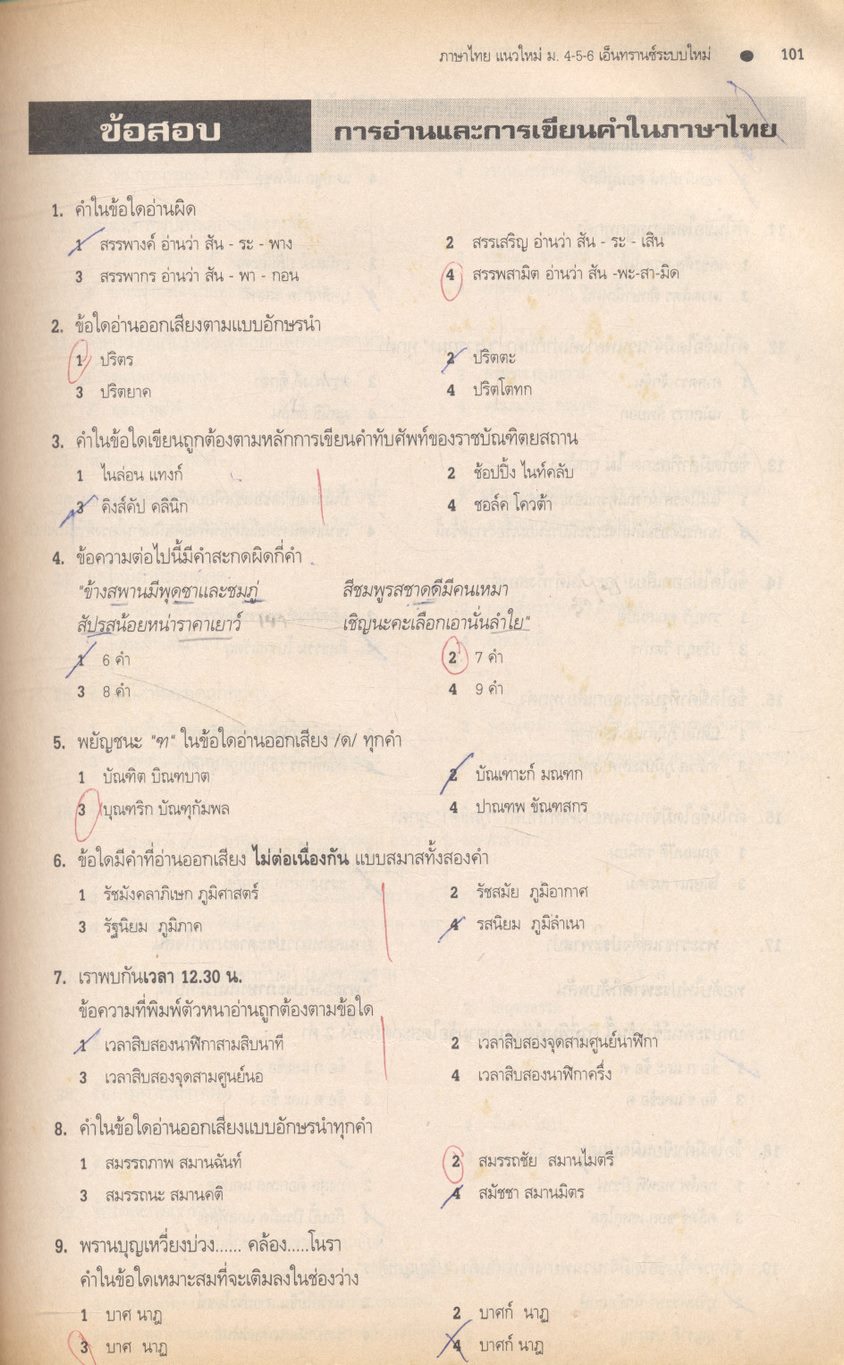 ภาษาไทย แนวใหม่ ม. 4-5-6 เอ็นทรานซ์ระบบใหม่ ● 101
ข้อสอบ การอ่านและการเขียนคำในภาษาไทย
1. คำในข้อใดอ่านผิด
1 สรรพางค์ อ่านว่า สัน - ระ - พาง 2 สรรเสริญ อ่านว่า สัน - ระ - เสิน
3 สรรพากร อ่านว่า สัน - พา - กอน 4 สรรพสามิต อ่านว่า สัน -พะ-สา-มิด
2. ข้อใดอ่านออกเสียงตามแบบอักษรนำ
1 ปริตร 2 ปริตตะ
3 ปริตยาค 4 ปริตโตทก
3. คำในข้อใดเขียนถูกต้องตามหลักการเขียนคำทับศัพท์ของราชบัณฑิตยสถาน
1 ไนล่อน แทงก์ 2 ช้อปปิ้ง ไนท์คลับ
3 คิงส์คัป คลินิก 4 ชอล์ค โควต้า
4. ข้อความต่อไปนี้มีคำสะกดผิดกี่คำ
"ข้างสพานมีพุดซาและชมภู่ สีชมพูรสชาดดีมีคนเหมา
สัปรสน้อยหน่าราคาเยาว์ เชิญนะคะเลือกเอานั่นลำใย"
1 6 คำ 2 7 คำ
3 8 คำ 4 9 คำ
5. พยัญชนะ "ฑ" ในข้อใดอ่านออกเสียง /ด/ ทุกคำ
1 บัณฑิต บิณฑบาต 2 บัณเฑาะก์ มณฑก
3 บุณฑริก บัณฑุกัมพล 4 ปาณฑพ ขัณฑสกร
6. ข้อใดมีคำที่อ่านออกเสียง ไม่ต่อเนื่องกัน แบบสมาสทั้งสองคำ
1 รัชมังคลาภิเษก ภูมิศาสตร์ 2 รัชสมัย ภูมิอากาศ
3 รัฐนิยม ภูมิภาค 4 รสนิยม ภูมิลำเนา
7. เราพบกันเวลา 12.30 น.
ข้อความที่พิมพ์ตัวหนาอ่านถูกต้องตามข้อใด
1 เวลาสิบสองนาฬิกาสามสิบนาที 2 เวลาสิบสองจุดสามศูนย์นาฬิกา
3 เวลาสิบสองจุดสามศูนย์นอ 4 เวลาสิบสองนาฬิกาครึ่ง
8. คำในข้อใดอ่านออกเสียงแบบอักษรนำทุกคำ
1 สมรรถภาพ สมานฉันท์ 2 สมรรถชัย สมานไมตรี
3 สมรรถนะ สมานคติ 4 สมัชชา สมานมิตร
9. พรานบุญเหวี่ยงบ่วง...... คล้อง.....โนรา
คำในข้อใดเหมาะสมที่จะเติมลงในช่องว่าง
1 บาศ นาฏ 2 บาศก์ นาฏ
3 บาศ นาฏ 4 บาศก์ นาฎ